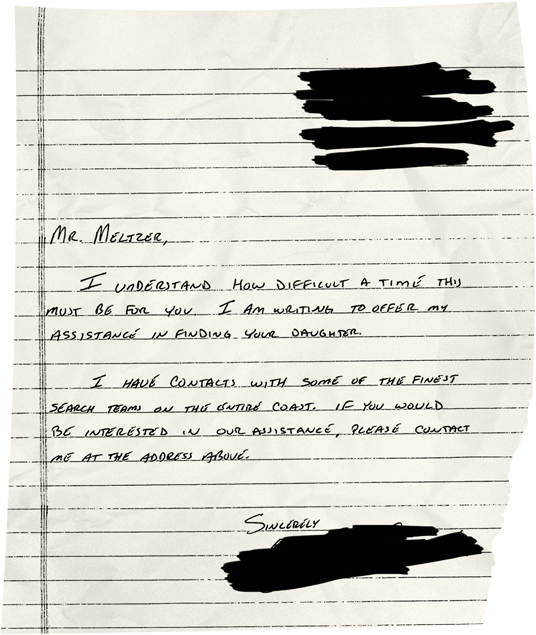 MR. MELTZER,
I UNDERSTAND HOW DIFFICULT A TIME THIS
MUST BE FOR YOU. I AM WRITING TO OFFER MY
ASSISTANCE IN FINDING YOUR DAUGHTER.
I HAVE CONTACTS WITH SOME OF THE FINEST
SEARCH TEAMS ON THE ENTIRE COAST. IF YOU WOULD
BE INTERESTED IN OUR ASSISTANCE, PLEASE CONTACT
ME AT THE ADDRESS ABOVE.
SINCERELY